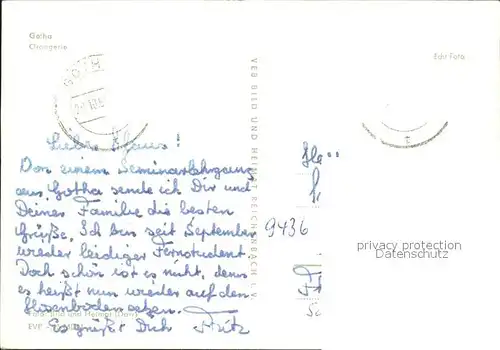 Gotha
Orangerie
Echt Foto
GOTHA
VEB BILD UND HEIMAT REICHENBACH I. V.
Lieber Klaus!
Von einem Seminarlehrgang
aus Gotha sende ich Dir und
Deiner Familie die besten
Grüße. Ich bin seit September
wieder leidiger Fernstudent.
Doch schön ist es nicht, denn
es heißt nun wieder auf den
Hosenboden setzen.
Es grüßt Dich Fritz
Foto: Bild und Heimat
EVP
9436
privacy protection
Datenschutz